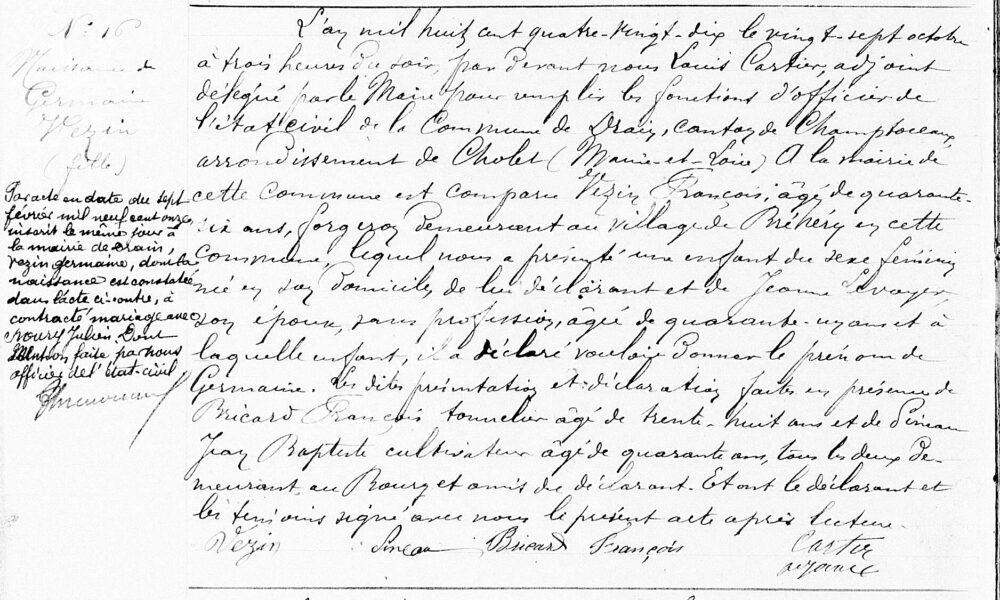 N° 16
Naissance de
Germaine
Vezin
(fille)
Par acte en date du sept
février mil neuf cent onze
inscrit le même jour à
la mairie de Drain,
Vezin Germaine, dont la
naissance est constatée
dans l'acte ci-contre, à
contracté mariage avec
Julien. Dont
Mention faite par nous
officier de l'Etat-civil
L'an mil huit cent quatre-vingt-dix le vingt-sept octobre
à trois heures du soir, par devant nous Louis Cartier, adjoint
délégué par le Maire pour remplir les fonctions d'officier de
l'état civil de la Commune de Drain, canton de Champtoceaux,
arrondissement de Cholet (Maine-et-Loire) A la mairie de
cette commune est comparu Vezin François, âgé de quarante-
six ans, forgeron demeurant au village de Bréhéry en cette
Commune, lequel nous a présenté une enfant du sexe féminin
né en son domicile, de lui déclarant et de Jeanne Levoyer,
son épouse, sans profession, âgée de quarante-un ans et à
laquelle enfant, il a déclaré vouloir donner le prénom de
Germaine. Les dites présentation et déclaration faites en présence de
Bricard François tonnelier âgé de trente-huit ans et de Pineau
Jean Baptiste cultivateur âgé de quarante ans, tous les deux de-
meurant au Bourg et amis du déclarant. Et ont le déclarant et
les témoins signé avec nous le présent acte après lecture.
Vezin Pineau Bricard François Cartier